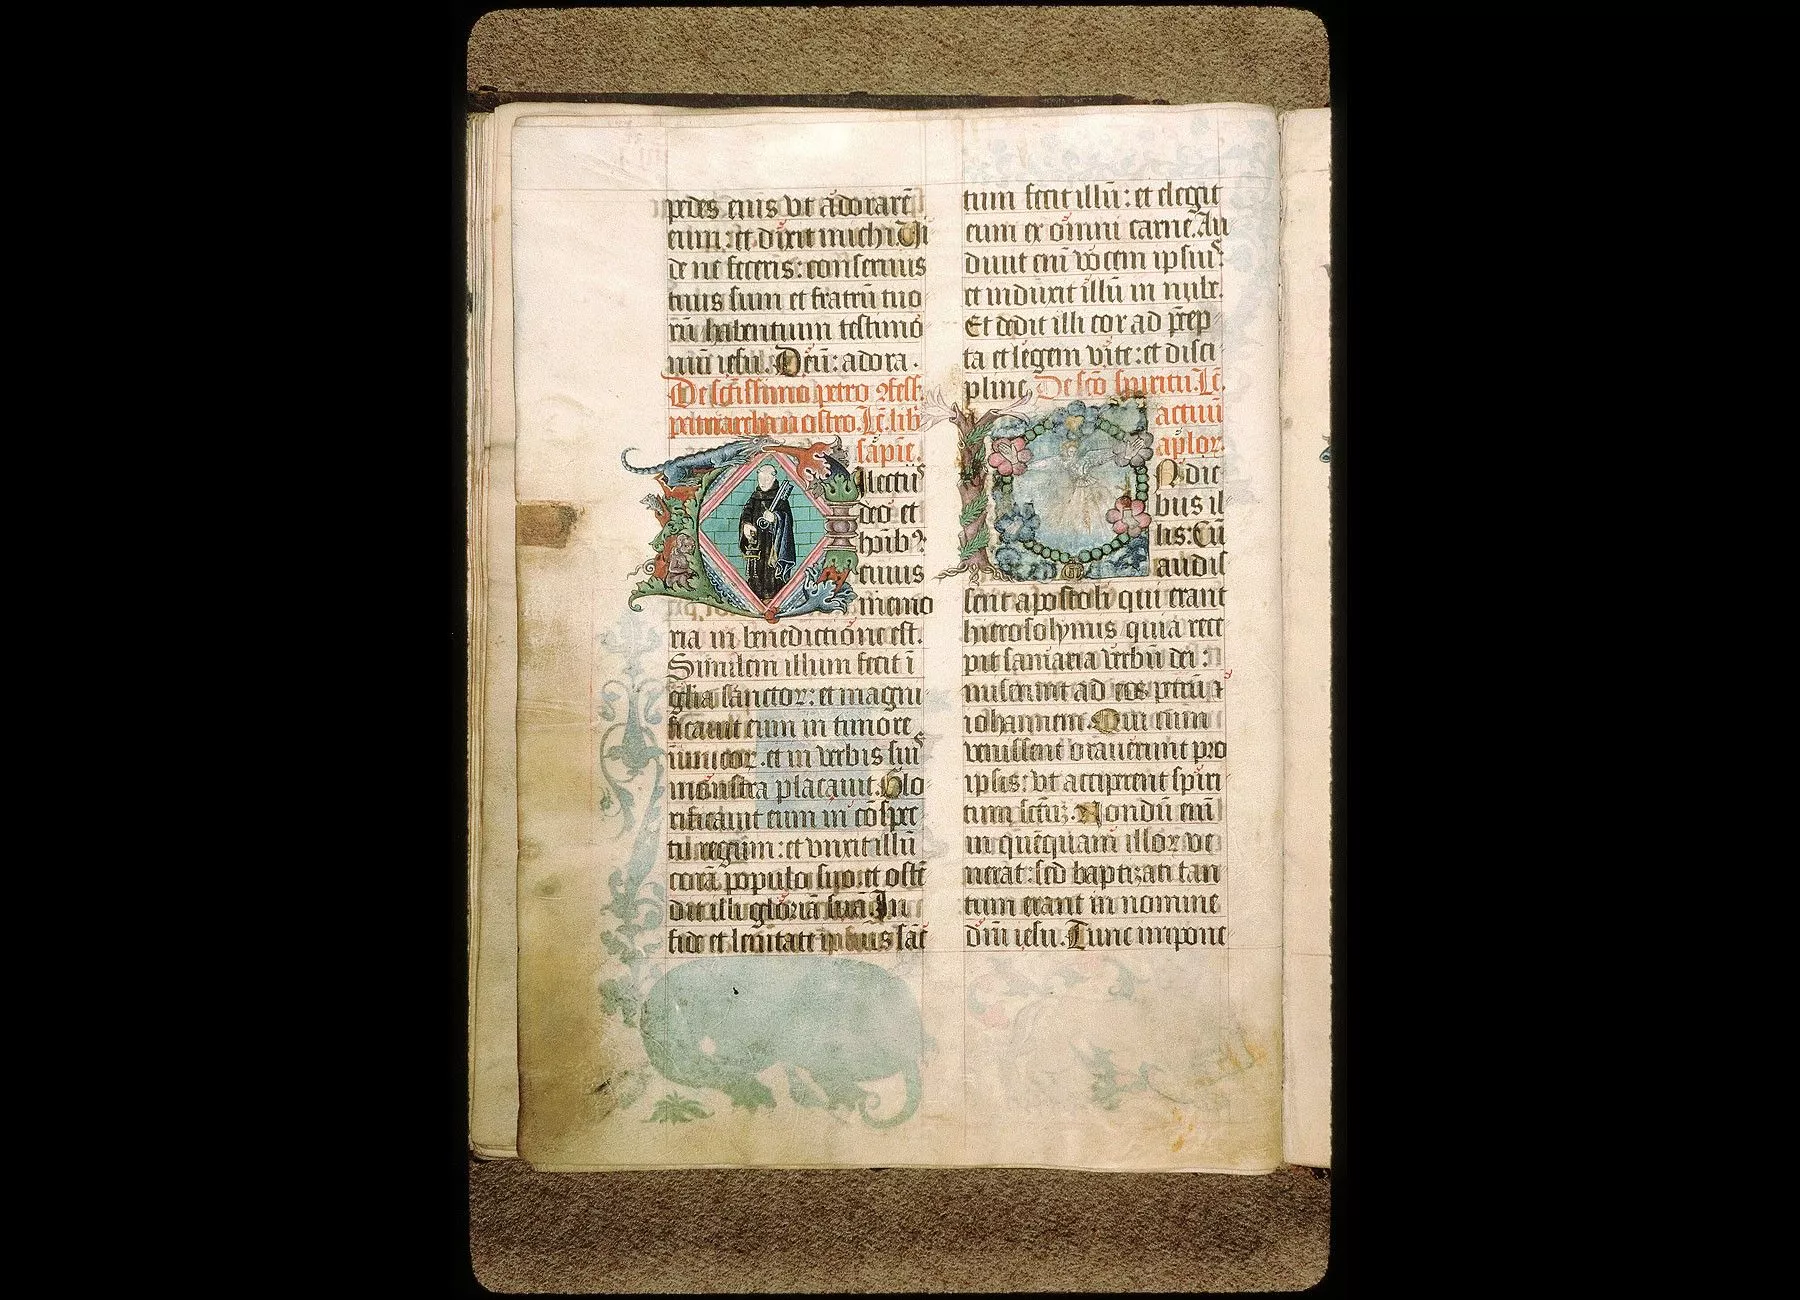 pedes eius vt adorarē
eum: et dixit michi. Vi
de ne feceris: conseruus
tuus sum et fratrū tuo
rū habentium testimo
niū iesu. Deū: adora.
De sctissimo petro 9fess.
patriarcha nostro. Lc̄. lib
sapie.
Ilectus
deo et
hoib9
cuius
memo
ria in benedictione est.
Similem illum fecit ī
glia sanctor: et magni
ficauit eum in timore
inimicor. et in verbis suis
monstra placauit. Glo
rificauit eum in cōspec
tu regum: et iuxit illū
corā populo suo. et oste
dit illi gloriā suā. In
fide et lenitate ipsius sāc
tum fecit illū: et elegit
eum ex omni carne. Au
diuit eni vocem ipsius:
et induxit illū in nube.
Et dedit illi cor ad p̄cep
ta et legem vite: et disci
pline. De sc̄o spiritu. Lc̄.
actuū
aplor.
N die
bus il
lis: Cū
audis
sent apostoli qui erant
hierosolymis quia rece
pit samaria verbū dei:
miserunt ad eos petrū et
iohannem. Qui cum
venissent orauerunt pro
ipsis: vt acciperent spiri
tum sctūz. Nondū enī
in quēquam illor ve
nerat: sed baptizati tan
tum erant in nomine
dn̄i iesu. Tunc impone